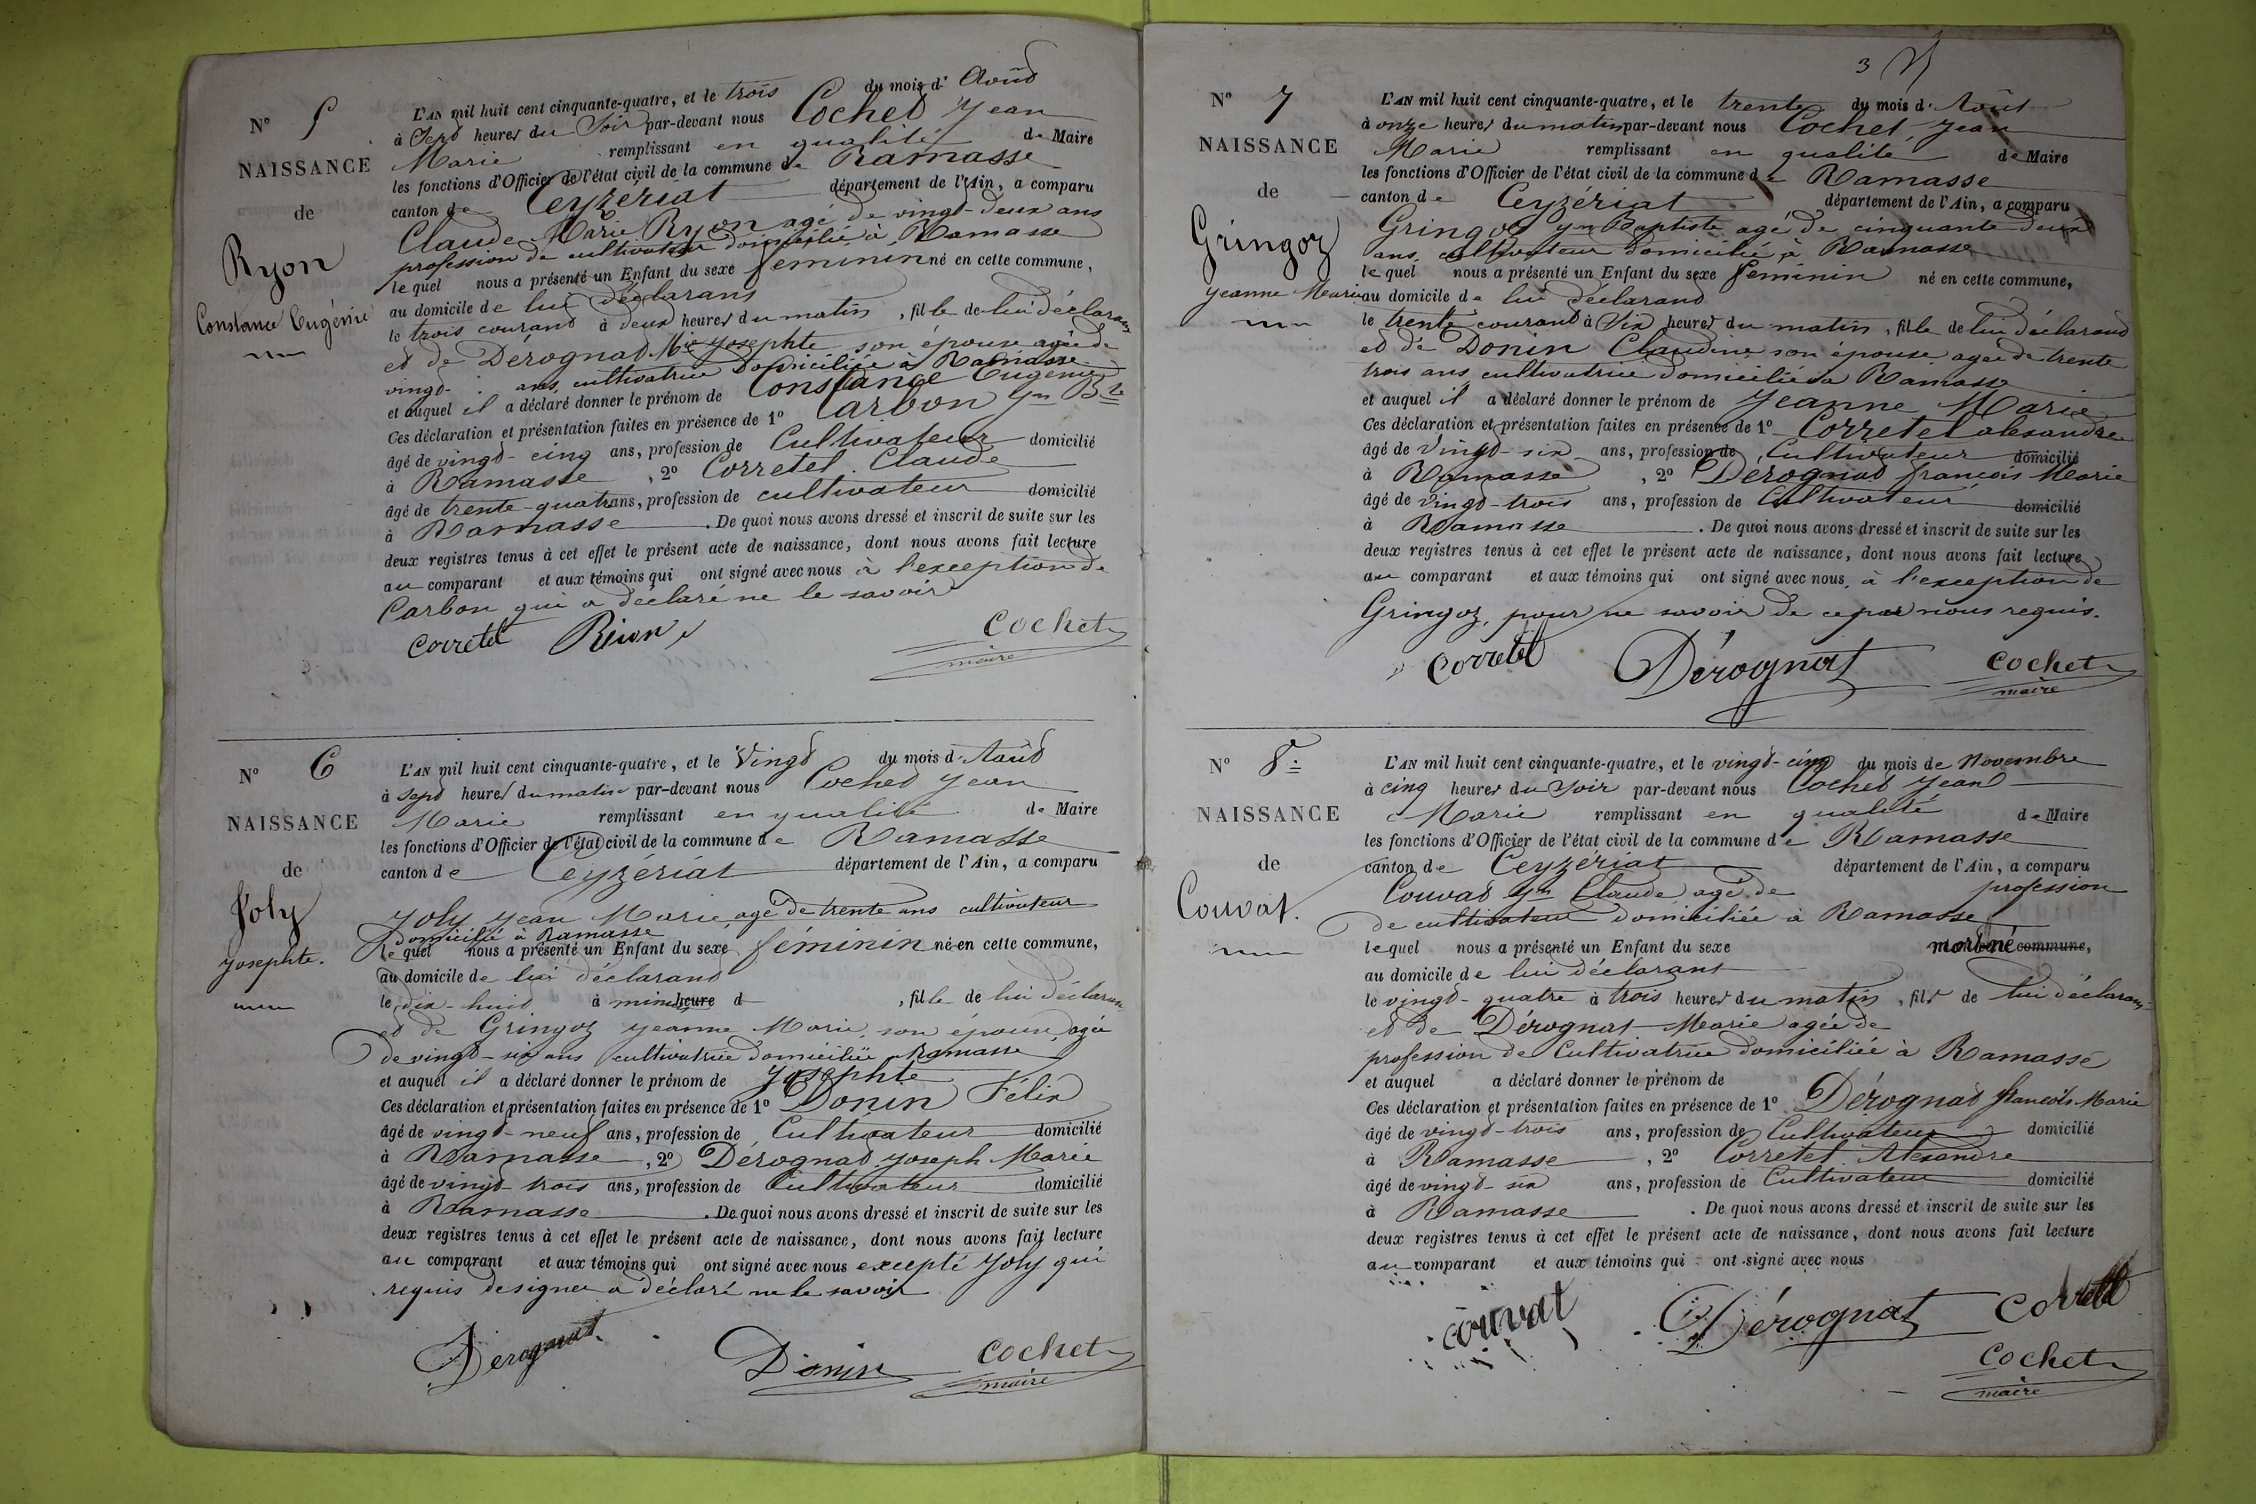 N° 5
NAISSANCE
de
Ryon
Constance Eugénie
L'AN mil huit cent cinquante-quatre, et le trois du mois d'Août
à Sept heures du Soir par-devant nous Cochet Jean
Marie remplissant en qualité de Maire
les fonctions d'Officier de l'état civil de la commune de Ramasse
canton de Ceyzériat département de l'Ain, a comparu
Claude Marie Ryon agé de vingt-deux ans
profession de cultivateur domicilié à Ramasse
lequel nous a présenté un Enfant du sexe feminin né en cette commune,
au domicile de lui déclarant
le trois courant à deux heures du matin, fille de lui déclarant
et de Dérognat Mie Josephte son épouse agée de
vingt- ans cultivatrice domiciliée à Ramasse
et auquel il a déclaré donner le prénom de Constance Eugénie
Ces déclaration et présentation faites en présence de 1° Carbon Jn Bte
âgé de vingt-cinq ans, profession de Cultivateur domicilié
à Ramasse, 2° Corretel Claude
âgé de trente-quatre ans, profession de cultivateur domicilié
à Ramasse. De quoi nous avons dressé et inscrit de suite sur les
deux registres tenus à cet effet le présent acte de naissance, dont nous avons fait lecture
au comparant et aux témoins qui ont signé avec nous à l'exception de
Carbon qui a déclaré ne le savoir
Corretel Rion Cochet
maire
N° 6
NAISSANCE
de
Joly
Josephte.
L'AN mil huit cent cinquante-quatre, et le Vingt du mois d'Août
à Sept heures du matin par-devant nous Cochet Jean
Marie remplissant en qualité de Maire
les fonctions d'Officier de l'état civil de la commune de Ramasse
canton de Ceyzériat département de l'Ain, a comparu
Joly Jean Marie agé de trente ans cultivateur
domicilié à Ramasse
lequel nous a présenté un Enfant du sexe féminin né en cette commune,
au domicile de lui déclarant
le dix-huit à minuit heure d, fille de lui déclarant
et de Gringoz Jeanne Marie, son épouse, agée
de vingt-six ans cultivatrice domiciliée Ramasse
et auquel il a déclaré donner le prénom de Josephte
Ces déclaration et présentation faites en présence de 1° Donin Félix
âgé de vingt-neuf ans, profession de Cultivateur domicilié
à Ramasse, 2° Dérognat Joseph Marie
âgé de vingt-trois ans, profession de Cultivateur domicilié
à Ramasse. De quoi nous avons dressé et inscrit de suite sur les
deux registres tenus à cet effet le présent acte de naissance, dont nous avons fait lecture
au comparant et aux témoins qui ont signé avec nous excepté Joly qui
requis designer a déclaré ne le savoir
Derognat Donin Cochet
maire
3
N° 7
NAISSANCE
de
Gringoz
Jeanne Marie
L'AN mil huit cent cinquante-quatre, et le trente du mois d'Août
à onze heures du matin par-devant nous Cochet, Jean
Marie remplissant en qualité de Maire
les fonctions d'Officier de l'état civil de la commune de Ramasse
canton de Ceyzériat département de l'Ain, a comparu
Gringoz Jn Baptiste agé de cinquante deux
ans, cultivateur domicilié à Ramasse
lequel nous a présenté un Enfant du sexe feminin né en cette commune,
au domicile de lui déclarant
le trente courant à Six heures du matin, fille de lui déclarant
et de Donin Claudine son épouse agée de trente
trois ans cultivatrice domiciliée à Ramasse
et auquel il a déclaré donner le prénom de Jeanne Marie
Ces déclaration et présentation faites en présence de 1° Corretel alexandre
âgé de Vingt-six ans, profession de Cultivateur domicilié
à Ramasse, 2° Derognat francois Marie
âgé de vingt-trois ans, profession de Cultivateur domicilié
à Ramasse. De quoi nous avons dressé et inscrit de suite sur les
deux registres tenus à cet effet le présent acte de naissance, dont nous avons fait lecture
au comparant et aux témoins qui ont signé avec nous, à l'exception de
Gringoz, pour ne savoir de ce par nous requis.
Corretel Dérognat Cochet
maire
N° 8
NAISSANCE
de
Couvat.
L'AN mil huit cent cinquante-quatre, et le vingt-cinq du mois de Novembre
à cinq heures du Soir par-devant nous Cochet Jean
Marie remplissant en qualité de Maire
les fonctions d'Officier de l'état civil de la commune de Ramasse
canton de Ceyzériat département de l'Ain, a comparu
Couvat Jn Claude agé de profession
de cultivateur domiciliée à Ramasse
lequel nous a présenté un Enfant du sexe mort-né commune,
au domicile de lui déclarant
le vingt-quatre à trois heures du matin, fils de lui déclarant
et de Dérognat Marie agée de
profession de Cultivatrice domiciliée à Ramasse
et auquel a déclaré donner le prénom de
Ces déclaration et présentation faites en présence de 1° Dérognat francois Marie
âgé de vingt-trois ans, profession de Cultivateur domicilié
à Ramasse, 2° Corretel Alexandre
âgé de vingt-six ans, profession de Cultivateur domicilié
à Ramasse. De quoi nous avons dressé et inscrit de suite sur les
deux registres tenus à cet effet le présent acte de naissance, dont nous avons fait lecture
au comparant et aux témoins qui ont signé avec nous
Couvat Dérognat Corretel
Cochet
maire